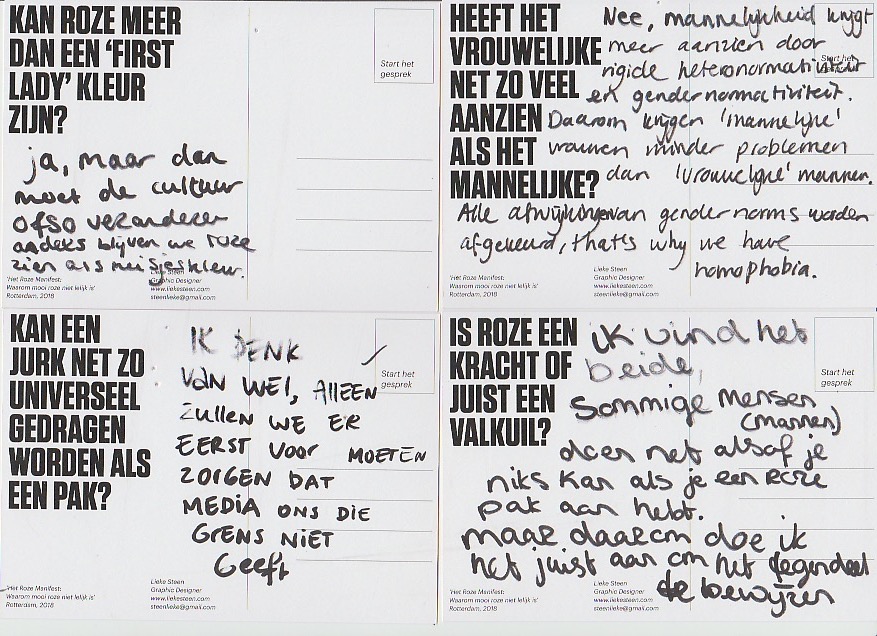 KAN ROZE MEER
DAN EEN 'FIRST
LADY' KLEUR
ZIJN?
Start het
gesprek
ja, maar dan
moet de cultuur
ofso veranderen
anders blijven we roze
zien als meisjeskleur.
'Het Roze Manifest:
Waarom mooi roze niet lelijk is'
Rotterdam, 2018
Lieke Steen
Graphic Designer
www.liekesteen.com
steenlieke@gmail.com
HEEFT HET
VROUWELIJKE
NET ZO VEEL
AANZIEN
ALS HET
MANNELIJKE?
Start het
gesprek
Nee, mannelijkheid krijgt
meer aanzien door
rigide heteronormativiteit
en gendernormativiteit.
Daarom krijgen 'mannelijke'
vrouwen minder problemen
dan 'vrouwelijke' mannen.
Alle afwijkingen van gender norms worden
afgekeurd, that's why we have
homophobia.
'Het Roze Manifest:
Waarom mooi roze niet lelijk is'
Rotterdam, 2018
Lieke Steen
Graphic Designer
www.liekesteen.com
steenlieke@gmail.com
KAN EEN
JURK NET ZO
UNIVERSEEL
GEDRAGEN
WORDEN ALS
EEN PAK?
Start het
gesprek
IK DENK
VAN WEL, ALLEEN
ZULLEN WE ER
EERST VOOR MOETEN
ZORGEN DAT
MEDIA ONS DIE
GRENS NIET
Geeft
'Het Roze Manifest:
Waarom mooi roze niet lelijk is'
Rotterdam, 2018
Lieke Steen
Graphic Designer
www.liekesteen.com
steenlieke@gmail.com
IS ROZE EEN
KRACHT OF
JUIST EEN
VALKUIL?
Start het
gesprek
ik vind het
beide,
Sommige mensen
(mannen)
doen net alsof je
niks kan als je een roze
pak aan hebt.
maar daarom doe ik
het juist aan om het tegendeel
te bewijzen
'Het Roze Manifest:
Waarom mooi roze niet lelijk is'
Rotterdam, 2018
Lieke Steen
Graphic Designer
www.liekesteen.com
steenlieke@gmail.com